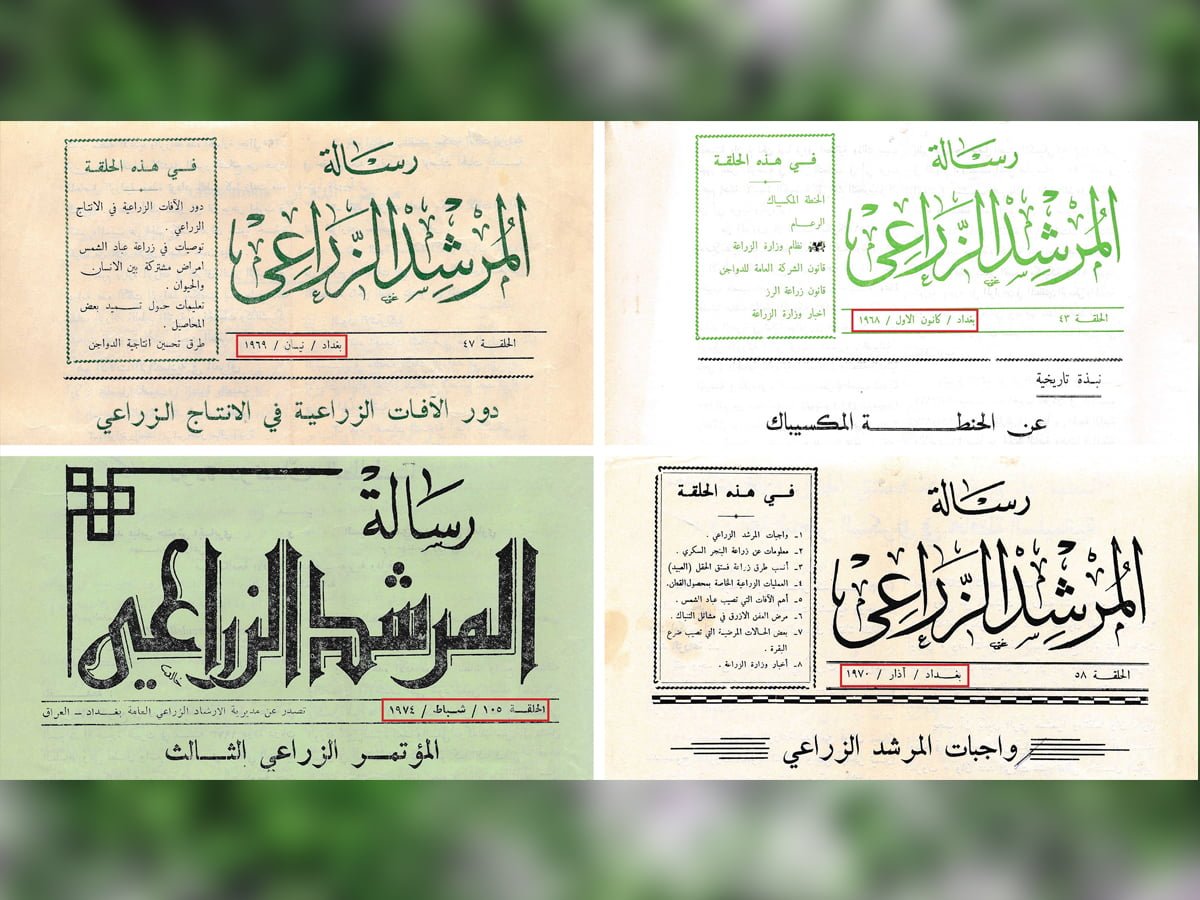 رسالة
المرشد الزراعي
الحلقة ٤٣
بغداد / كانون الاول / ١٩٦٨
في هذه الحلقة
الحنطة المكسيباك
الرعام
نظام وزارة الزراعة
قانون الشركة العامة للدواجن
قانون زراعة الرز
اخبار وزارة الزراعة
نبذة تاريخية
عن الحنطة المكسيباك
رسالة
المُرشِدُ الزِّرَاعِي
الحلقة ٤٧
بغداد / نيسان / ١٩٦٩
في هذه الحلقة
دور الآفات الزراعية في الانتاج
الزراعي .
توصيات في زراعة عباد الشمس
امراض مشتركة بين الانسان
والحيوان .
تعليمات حول تسميد بعض
المحاصيل .
طرق تحسين انتاجية الدواجن
دور الآفات الزراعية في الانتاج الزراعي
رسالة
المُرشِدُ الزِّرَاعِي
الحلقة ٥٨
بغداد / آذار / ١٩٧٠
في هذه الحلقة
١ـ واجبات المرشد الزراعي .
٢ـ معلومات عن زراعة البنجر السكري .
٣ـ أنسب طرق زراعة فستق الحقل (العبيد)
٤ـ العمليات الزراعية الخاصة بمحصول القطن.
٥ـ أهم الآفات التي تصيب عباد الشمس .
٦ـ مرض العفن الازرق في مشاتل التباك .
٧ـ بعض الحالات المرضية التي تصيب ضرع
البقرة .
٨ـ أخبار وزارة الزراعة .
واجبات المرشد الزراعي
رسالة
المرشد الزراعي
الحلقة ١٠٥ / شباط / ١٩٧٤
تصدر عن مديرية الارشاد الزراعي العامة بغداد – العراق
المؤتمر الزراعي الثالث